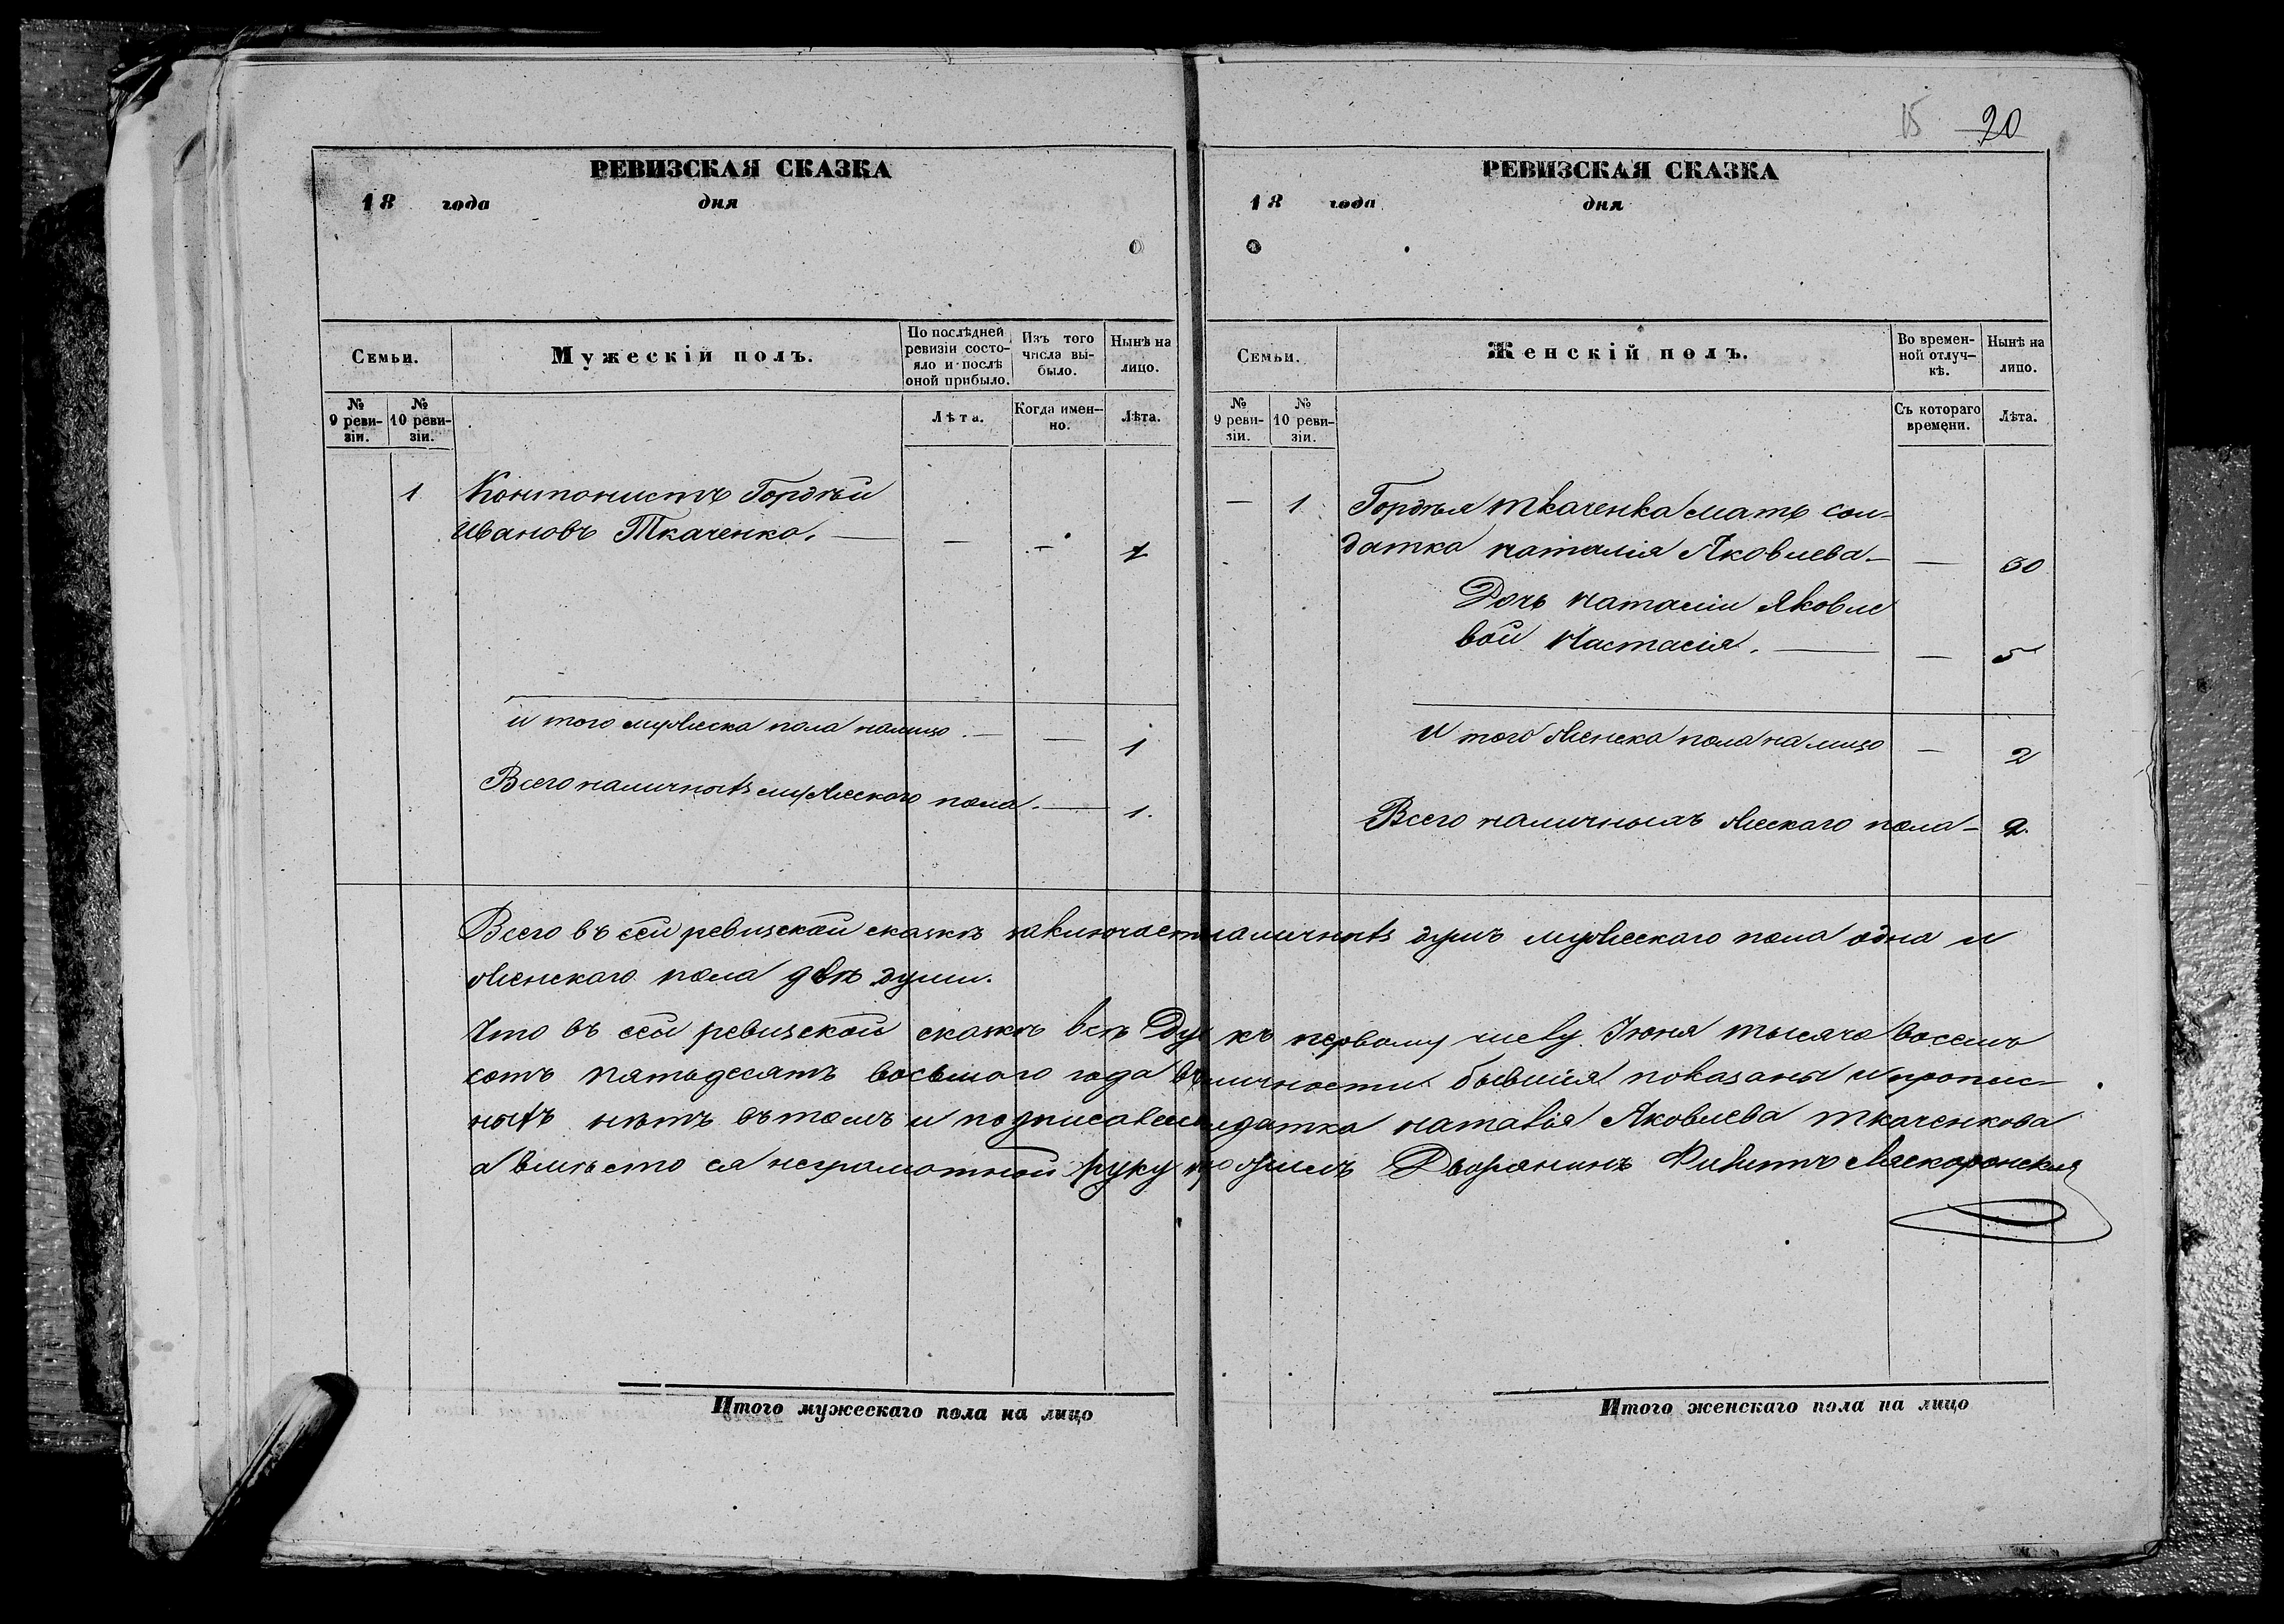 15 20
РЕВИЗСКАЯ СКАЗКА
18 года дня
Семьи.
Мужескій полъ.
По послѣдней ревизіи состояло и послѣ оной прибыло.
Изъ того числа выбыло.
Нынѣ на лицо.
№ 9 ревизіи.
№ 10 ревизіи.
Лѣта.
Когда именно.
Лѣта.
1 Контонистъ Гордѣй
Ивановъ Ткаченко. — — — 7
и того мужеска пола налицо. — — 1
Всего наличныхъ мужеского пола. — 1.
РЕВИЗСКАЯ СКАЗКА
18 года дня
Семьи.
Женскій полъ.
Во временной отлучкѣ.
Нынѣ на лицо.
№ 9 ревизіи.
№ 10 ревизіи.
Съ котораго времени.
Лѣта.
— 1 Гордѣя Ткаченка мать сол-
датка Наталія Яковлева — — 30
Дочь Наталіи Яковле
вой Настасія. — — 5
И того женска пола на лицо — 2
Всего наличныхъ жескаго пола — 2.
Всего въ сей ревизской сказкѣ заключает наличныхъ душъ мужескаго пола одна и
женскаго пола двѣ души.
Что въ сей ревизской сказкѣ всѣ Ду къ первому числу Іюня тысяча восемь
сотъ пятьдесятъ восьмого года в личности бывшія показаны и пропис-
ныхъ нѣтъ въ томъ и подписа датка Наталія Яковлева Ткаченкова
а вмѣсто ея неграмотной руку Дворянинъ
Итого мужескаго пола на лицо
Итого женскаго пола на лицо